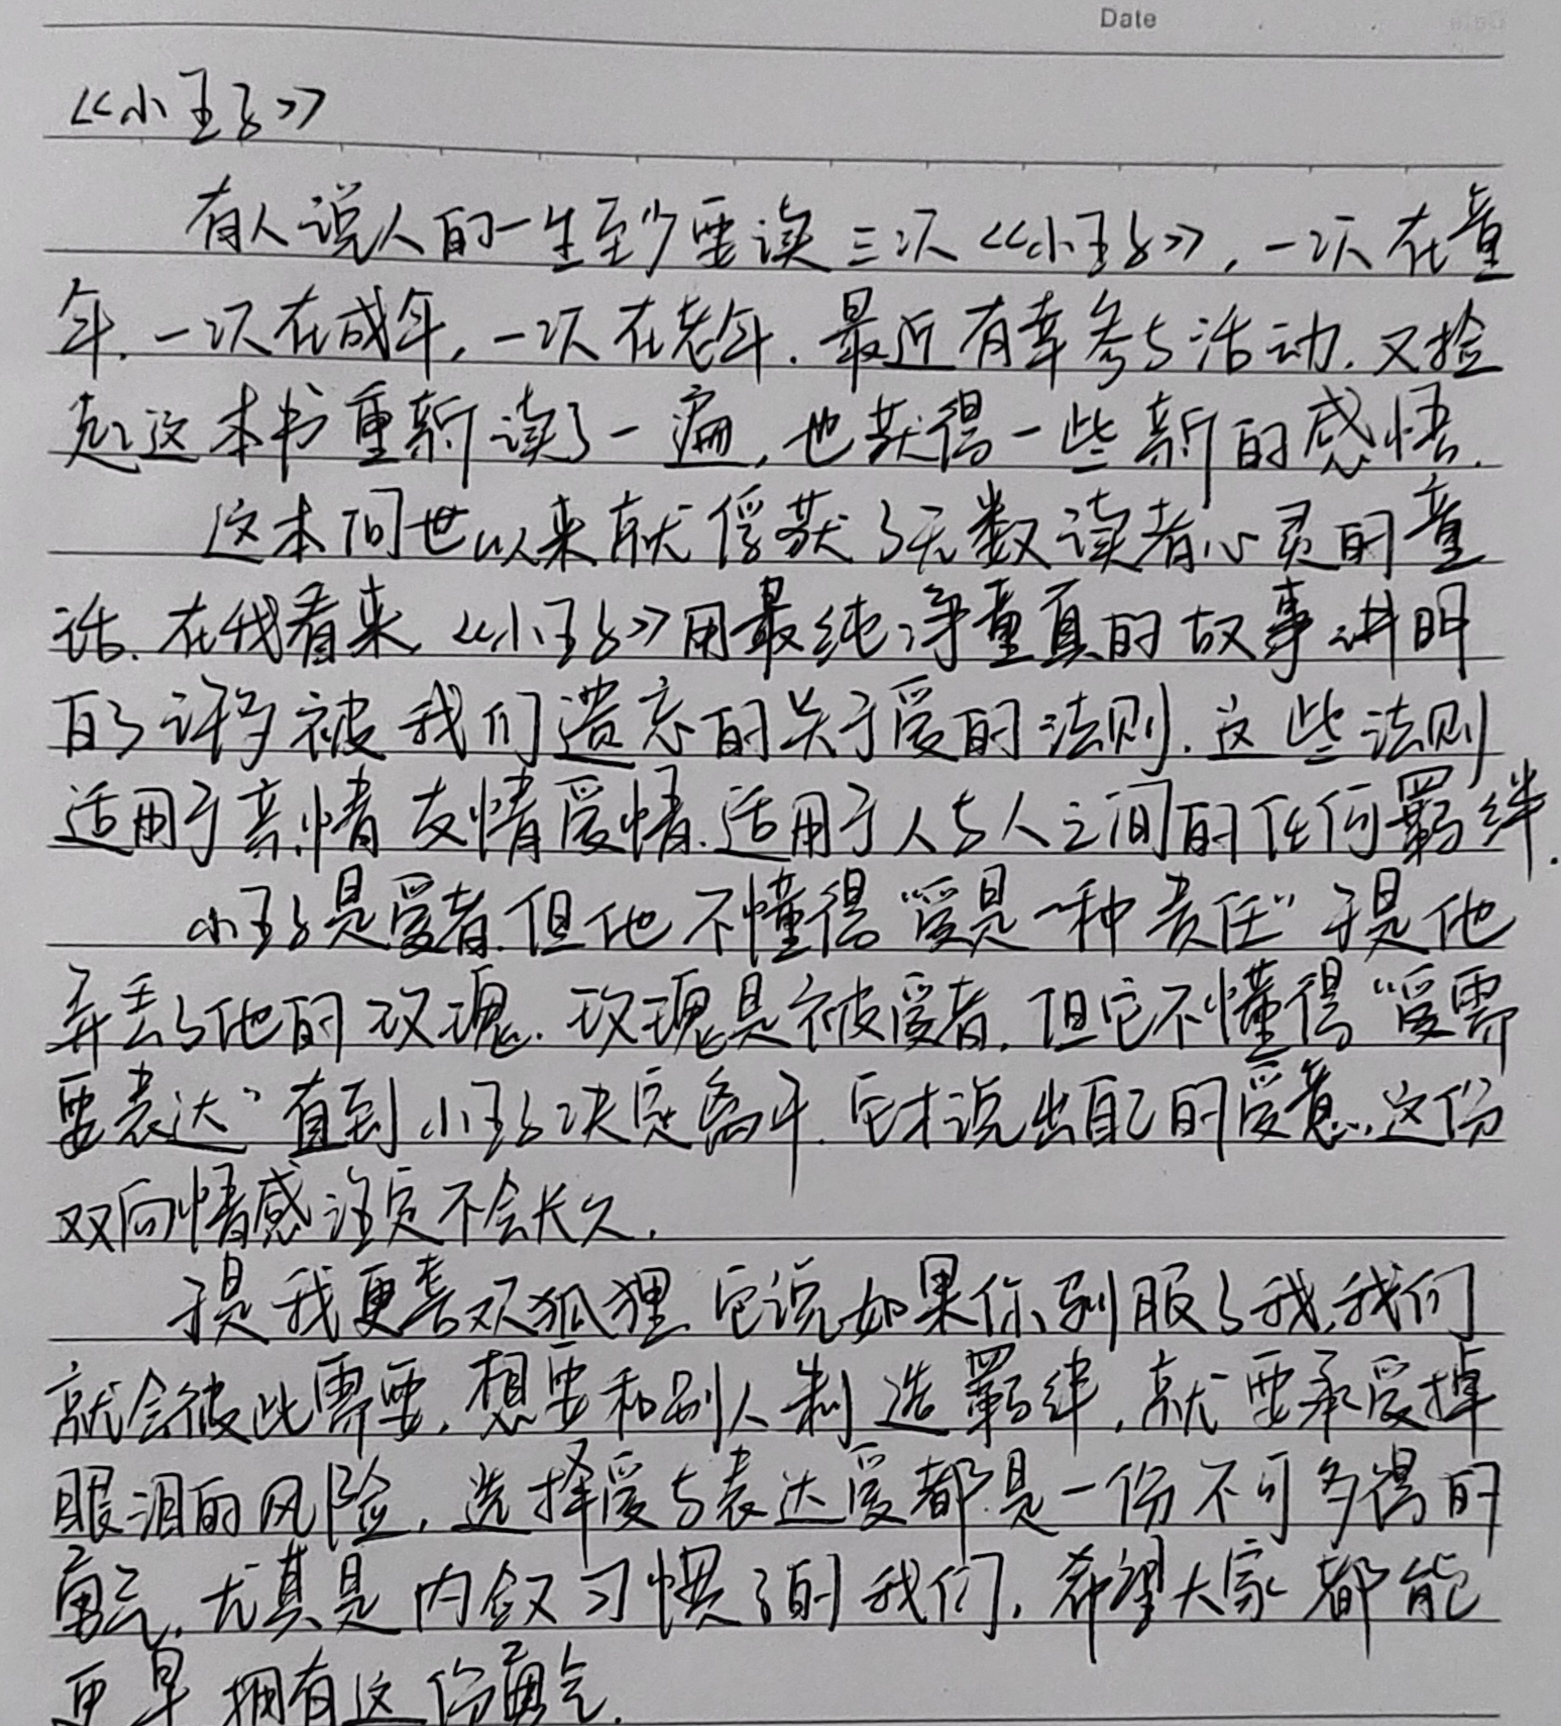 Date
《小王子》
有人说人的一生至少要读三次《小王子》，一次在童
年.一次在成年,一次在老年.最近有幸参与活动.又捡
起这本书重新读了一遍,也获得一些新的感悟.
这本问世以来就俘获了无数读者心灵的童
话.在我看来,《小王子》用最纯净童真的故事讲明
白了许多被我们遗忘的关于爱的法则.这些法则
适用于亲情友情爱情.适用于人与人之间的任何羁绊.
小王子是爱者.但他不懂得“爱是一种责任”于是他
弄丢了他的玫瑰.玫瑰是被爱者.但它不懂得“爱需
要表达”直到小王子决定离开.它才说出自己的爱意.这份
双向情感注定不会长久.
于是我更喜欢狐狸.它说如果你驯服了我,我们
就会彼此需要.想要和别人制造羁绊,就要承受掉
眼泪的风险,选择爱与表达爱都是一份不可多得的
勇气.尤其是内敛习惯了的我们.希望大家都能
更早拥有这份勇气.